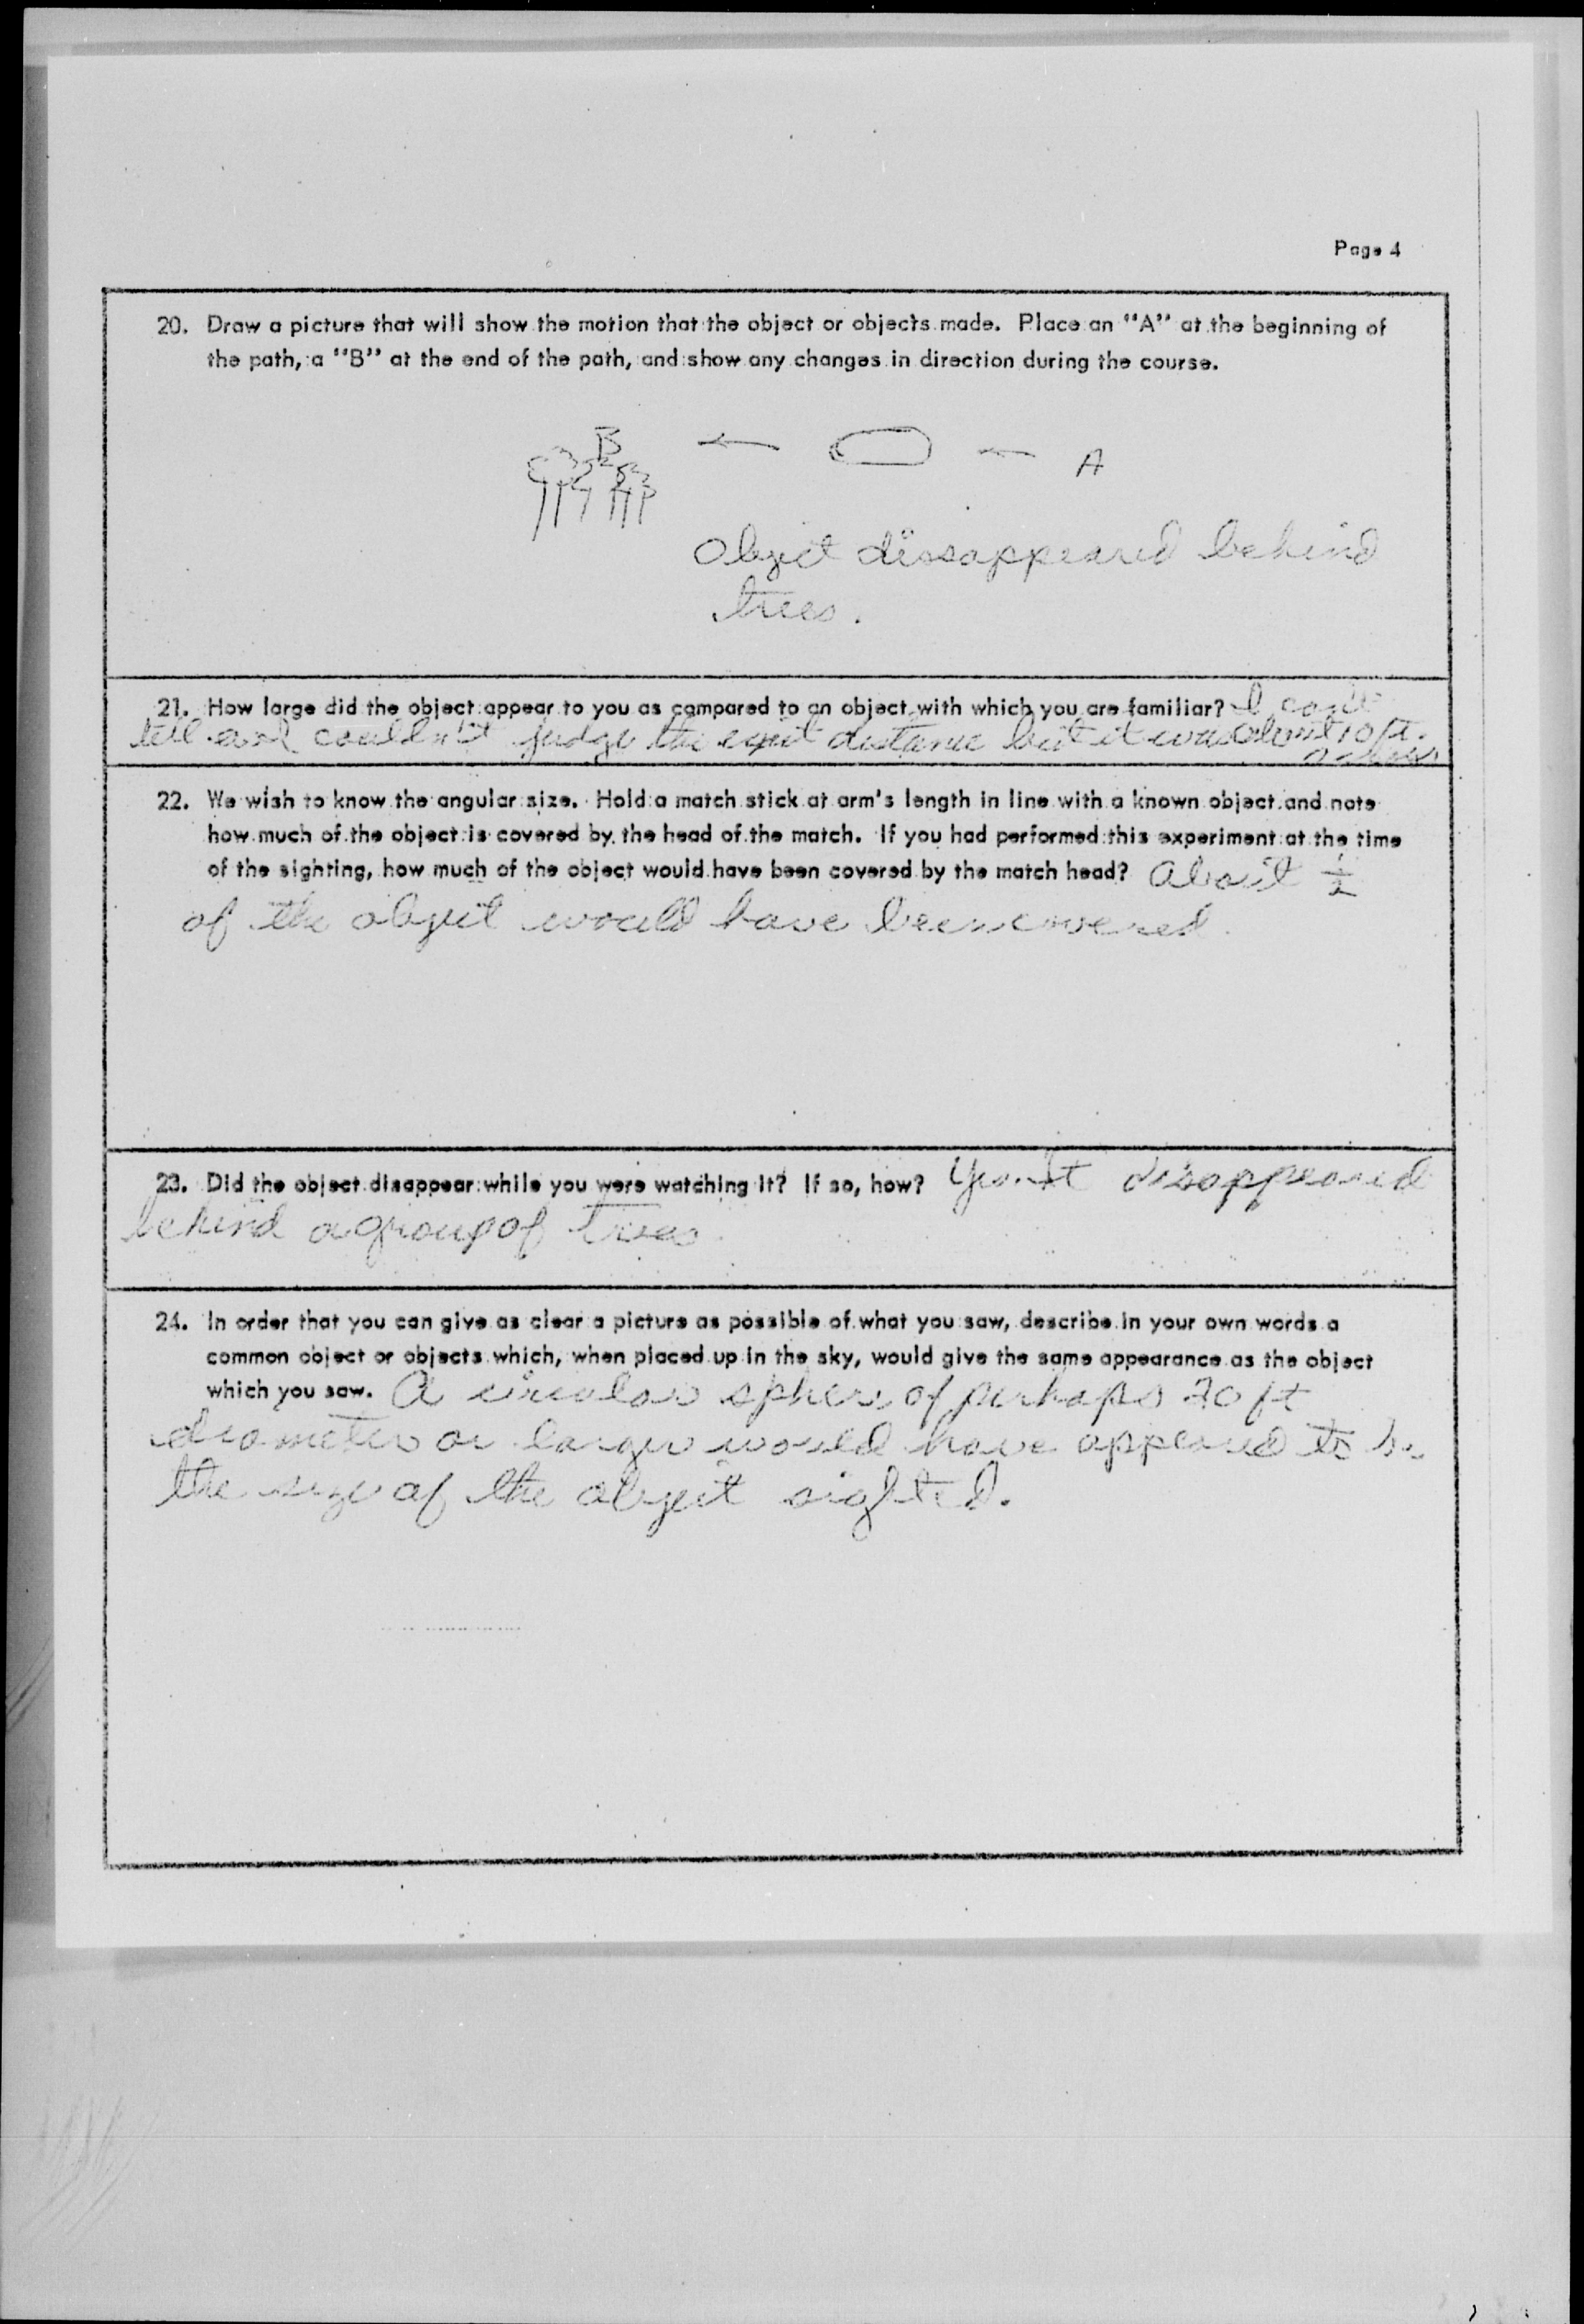 Page 4
20. Draw a picture that will show the motion that the object or objects made. Place an "A" at the beginning of
the path, a "B" at the end of the path, and show any changes in direction during the course.
B
A
Object dissappeared behind
trees.
21. How large did the object appear to you as compared to an object with which you are familiar? I can't
tell as I couldn't judge the distance but it was about 10 ft.
across
22. We wish to know the angular size. Hold a match stick at arm's length in line with a known object and note
how much of the object is covered by the head of the match. If you had performed this experiment at the time
of the sighting, how much of the object would have been covered by the match head? About 1/2
of the object would have been covered.
23. Did the object disappear while you were watching it? If so, how? Yes. It disappeared
behind a group of trees.
24. In order that you can give as clear a picture as possible of what you saw, describe in your own words a
common object or objects which, when placed up in the sky, would give the same appearance as the object
which you saw. A circular sphere of perhaps ft
diameter or larger would have appeared to be
the size of the object sighted.